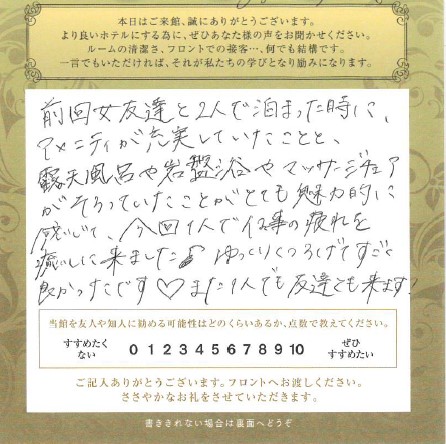 本日はご来館、誠にありがとうございます。
より良いホテルにする為に、ぜひあなた様の声をお聞かせください。
ルームの清潔さ、フロントでの接客…、何でも結構です。
一言でもいただければ、それが私たちの学びとなり励みになります。
前回女友達と2人で泊まった時に、
アメニティが充実していたことと、
露天風呂や岩盤浴やマッサージチェア
がそろっていたことがとても魅力的に
感じて、今回1人で仕事の疲れを
癒しに来ました♪ ゆっくりくつろげてすごく
良かったです♡また1人でも友達とも来ます!
当館を友人や知人に勧める可能性はどのくらいあるか、点数で教えてください。
すすめたく
ない
0 1 2 3 4 5 6 7 8 9 10
ぜひ
すすめたい
ご記入ありがとうございます。フロントへお渡しください。
ささやかなお礼をさせていただきます。
書ききれない場合は裏面へどうぞ